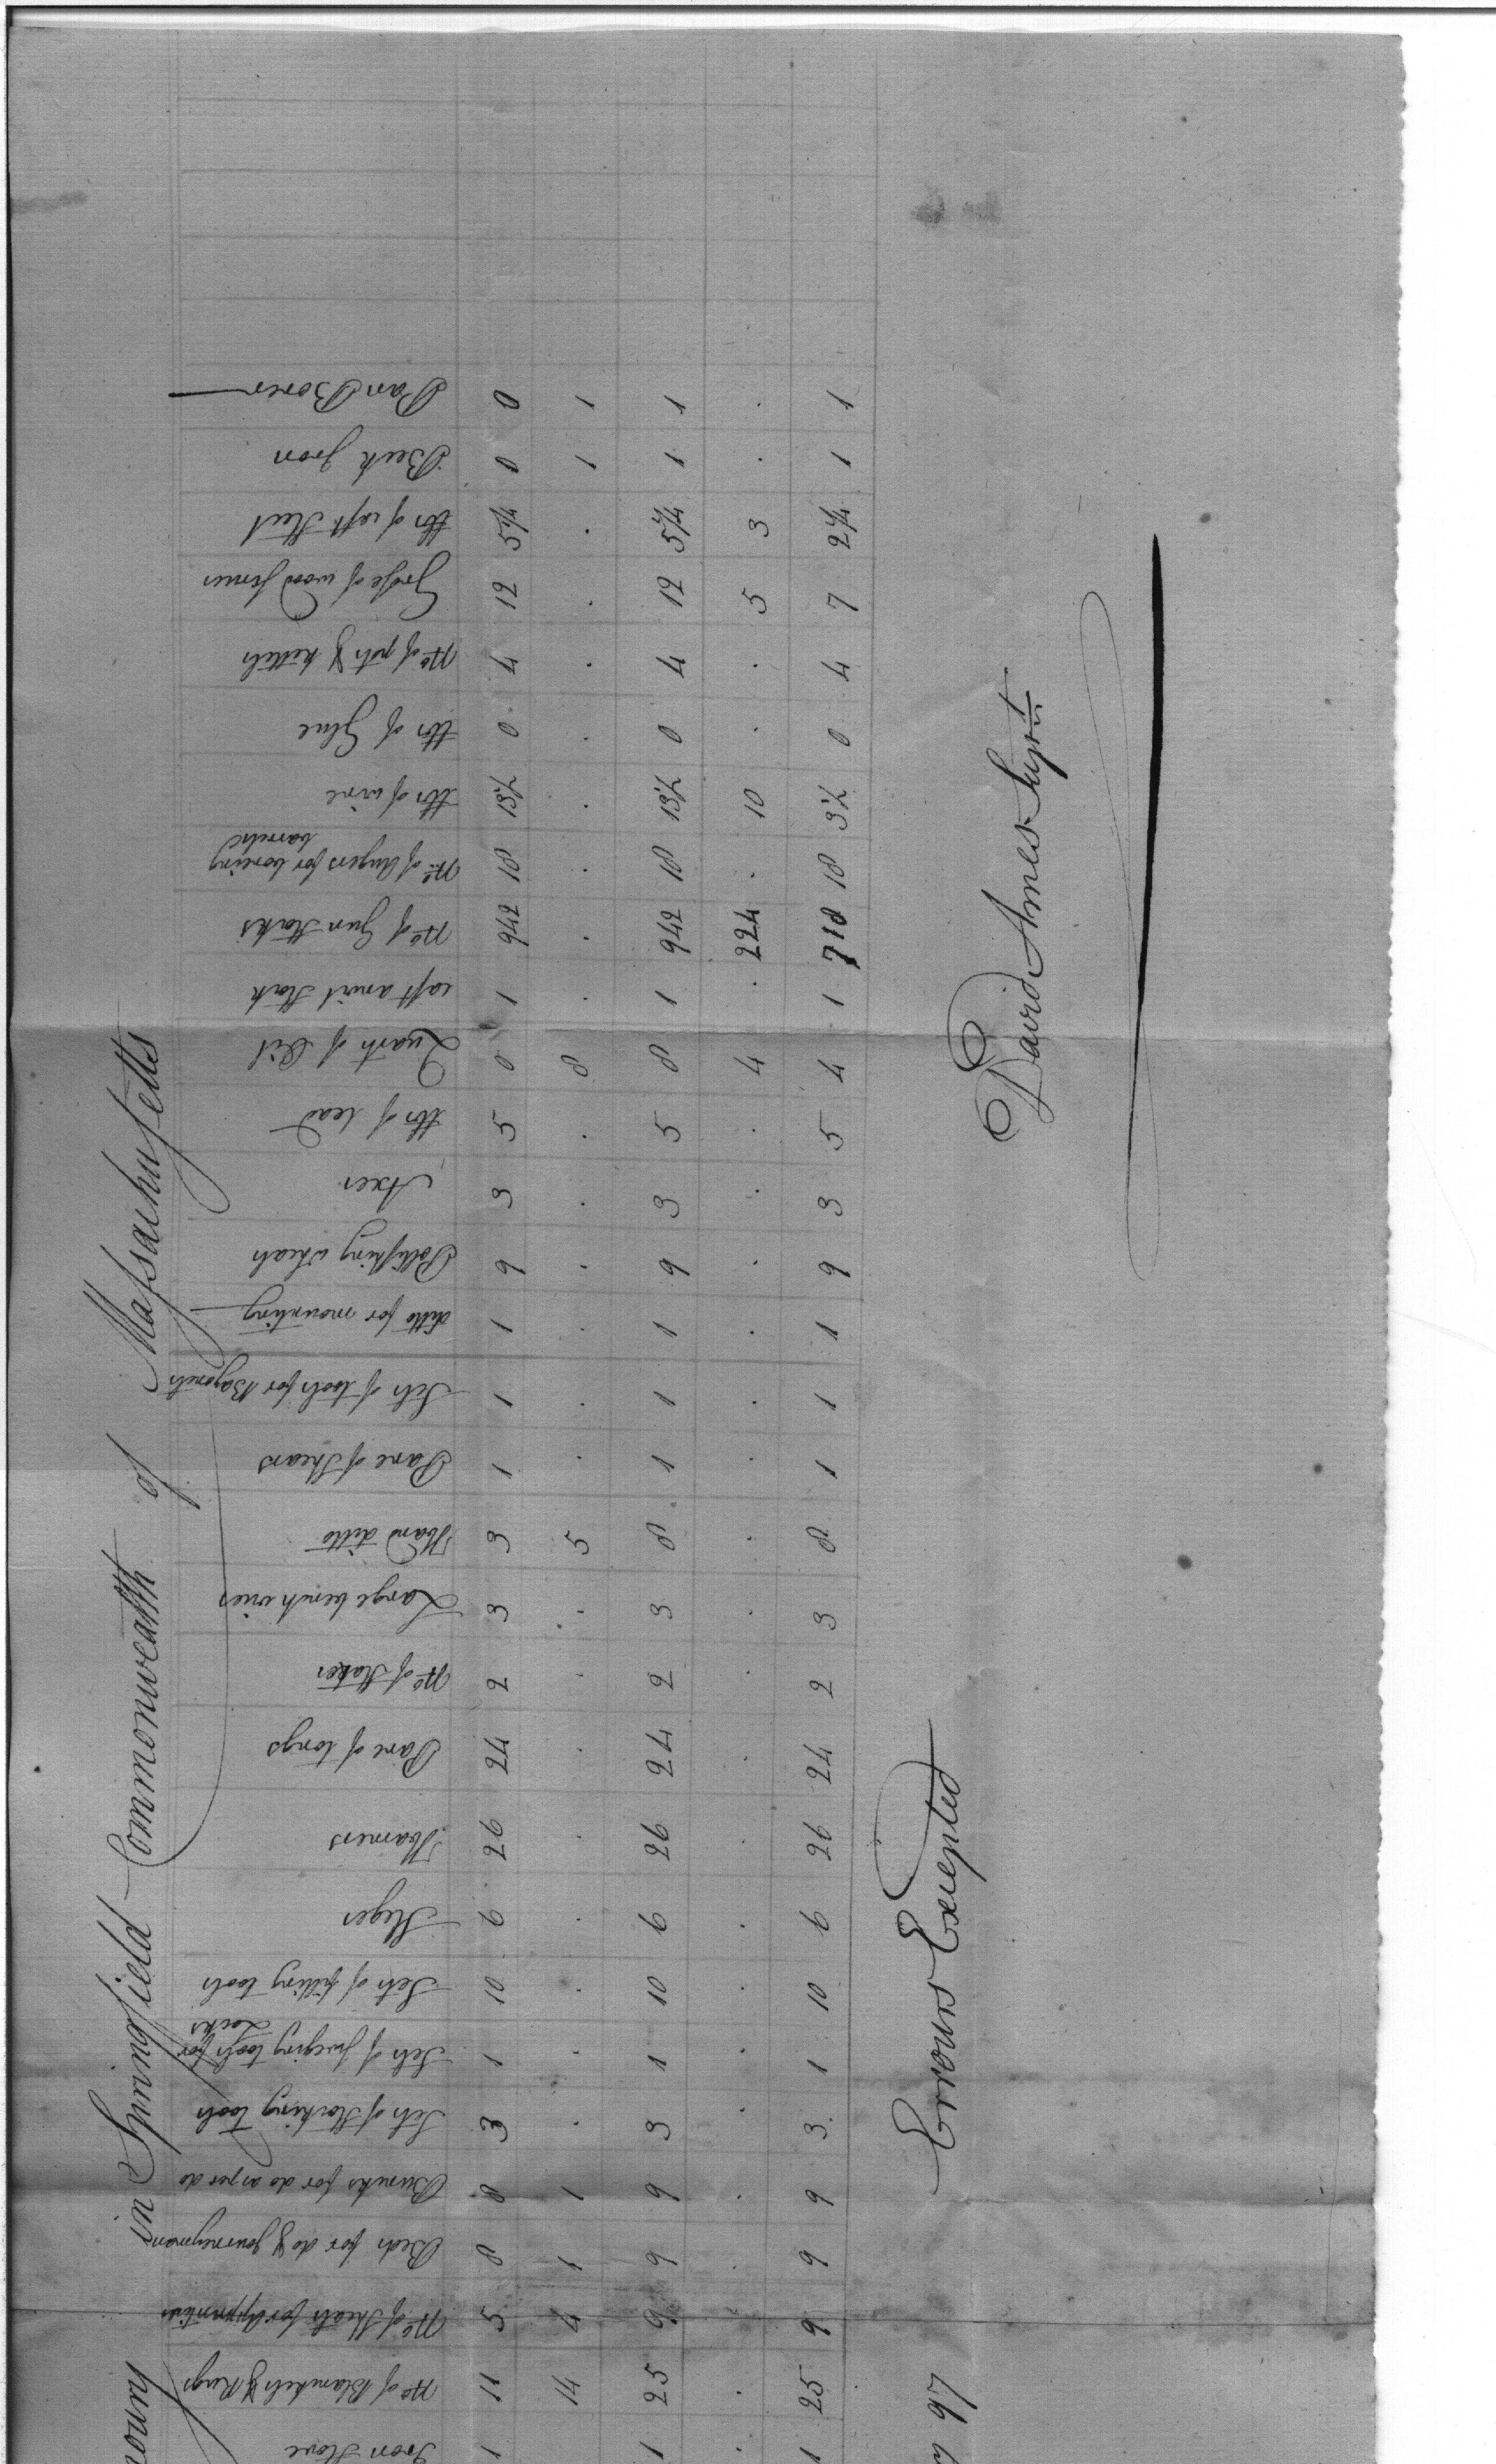 in Springfield Commonwealth of Massachusetts
Iron Stove
No of Blankets & Rugs
No of Sheets for Apprentices
Beds for do & Journeymen
Buncks for do as per do
Sets of Stocking tools
Sets of forging tools for Locks
Sets of filling tools
Sleges
Hamers
Pare of tongs
No of Stakes
Large bench vices
Hand ditto
Pare of Shears
Sets of tools for Bayonets
ditto for mounting
Pollishing wheals
Axes
lbs of lead
Quarts of Oil
cast anvil Stock
No of Gun Stocks
No of Augers for boreing barrels
lbs of wire
lbs of Glue
No of pots & kettels
Grose of wood screws
lbs of cast Steel
Beck Iron
Pan Borer
1 11 5 8 8 3 1 10 6 26 24 2 3 3 1 1 1 9 3 5 0 1 942 18 13½ 0 4 12 5¼ 0 0
14 4 1 1 . . . . . . . . 5 . . . . . . 8 . . . . . . . . 1 1
1 25 9 9 9 3 1 10 6 26 24 2 3 8 1 1 1 9 3 5 8 1 942 18 13½ 0 4 12 5¼ 1 1
. . . . . . . . . . . . . . . . . . . . 4 . 224 . 10 . . 5 3 . .
1 25 9 9 9 3 1 10 6 26 24 2 3 8 1 1 1 9 3 5 4 1 718 18 3½ 0 4 7 2¼ 1 1
97 Errours Excepted
David Ames Suprt